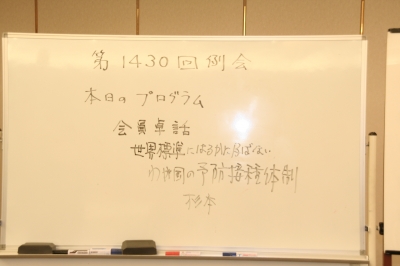 第1430回例会
本日のプログラム
会員卓話
世界標準にはるかに及ばない
わが国の予防接種体制
杉本